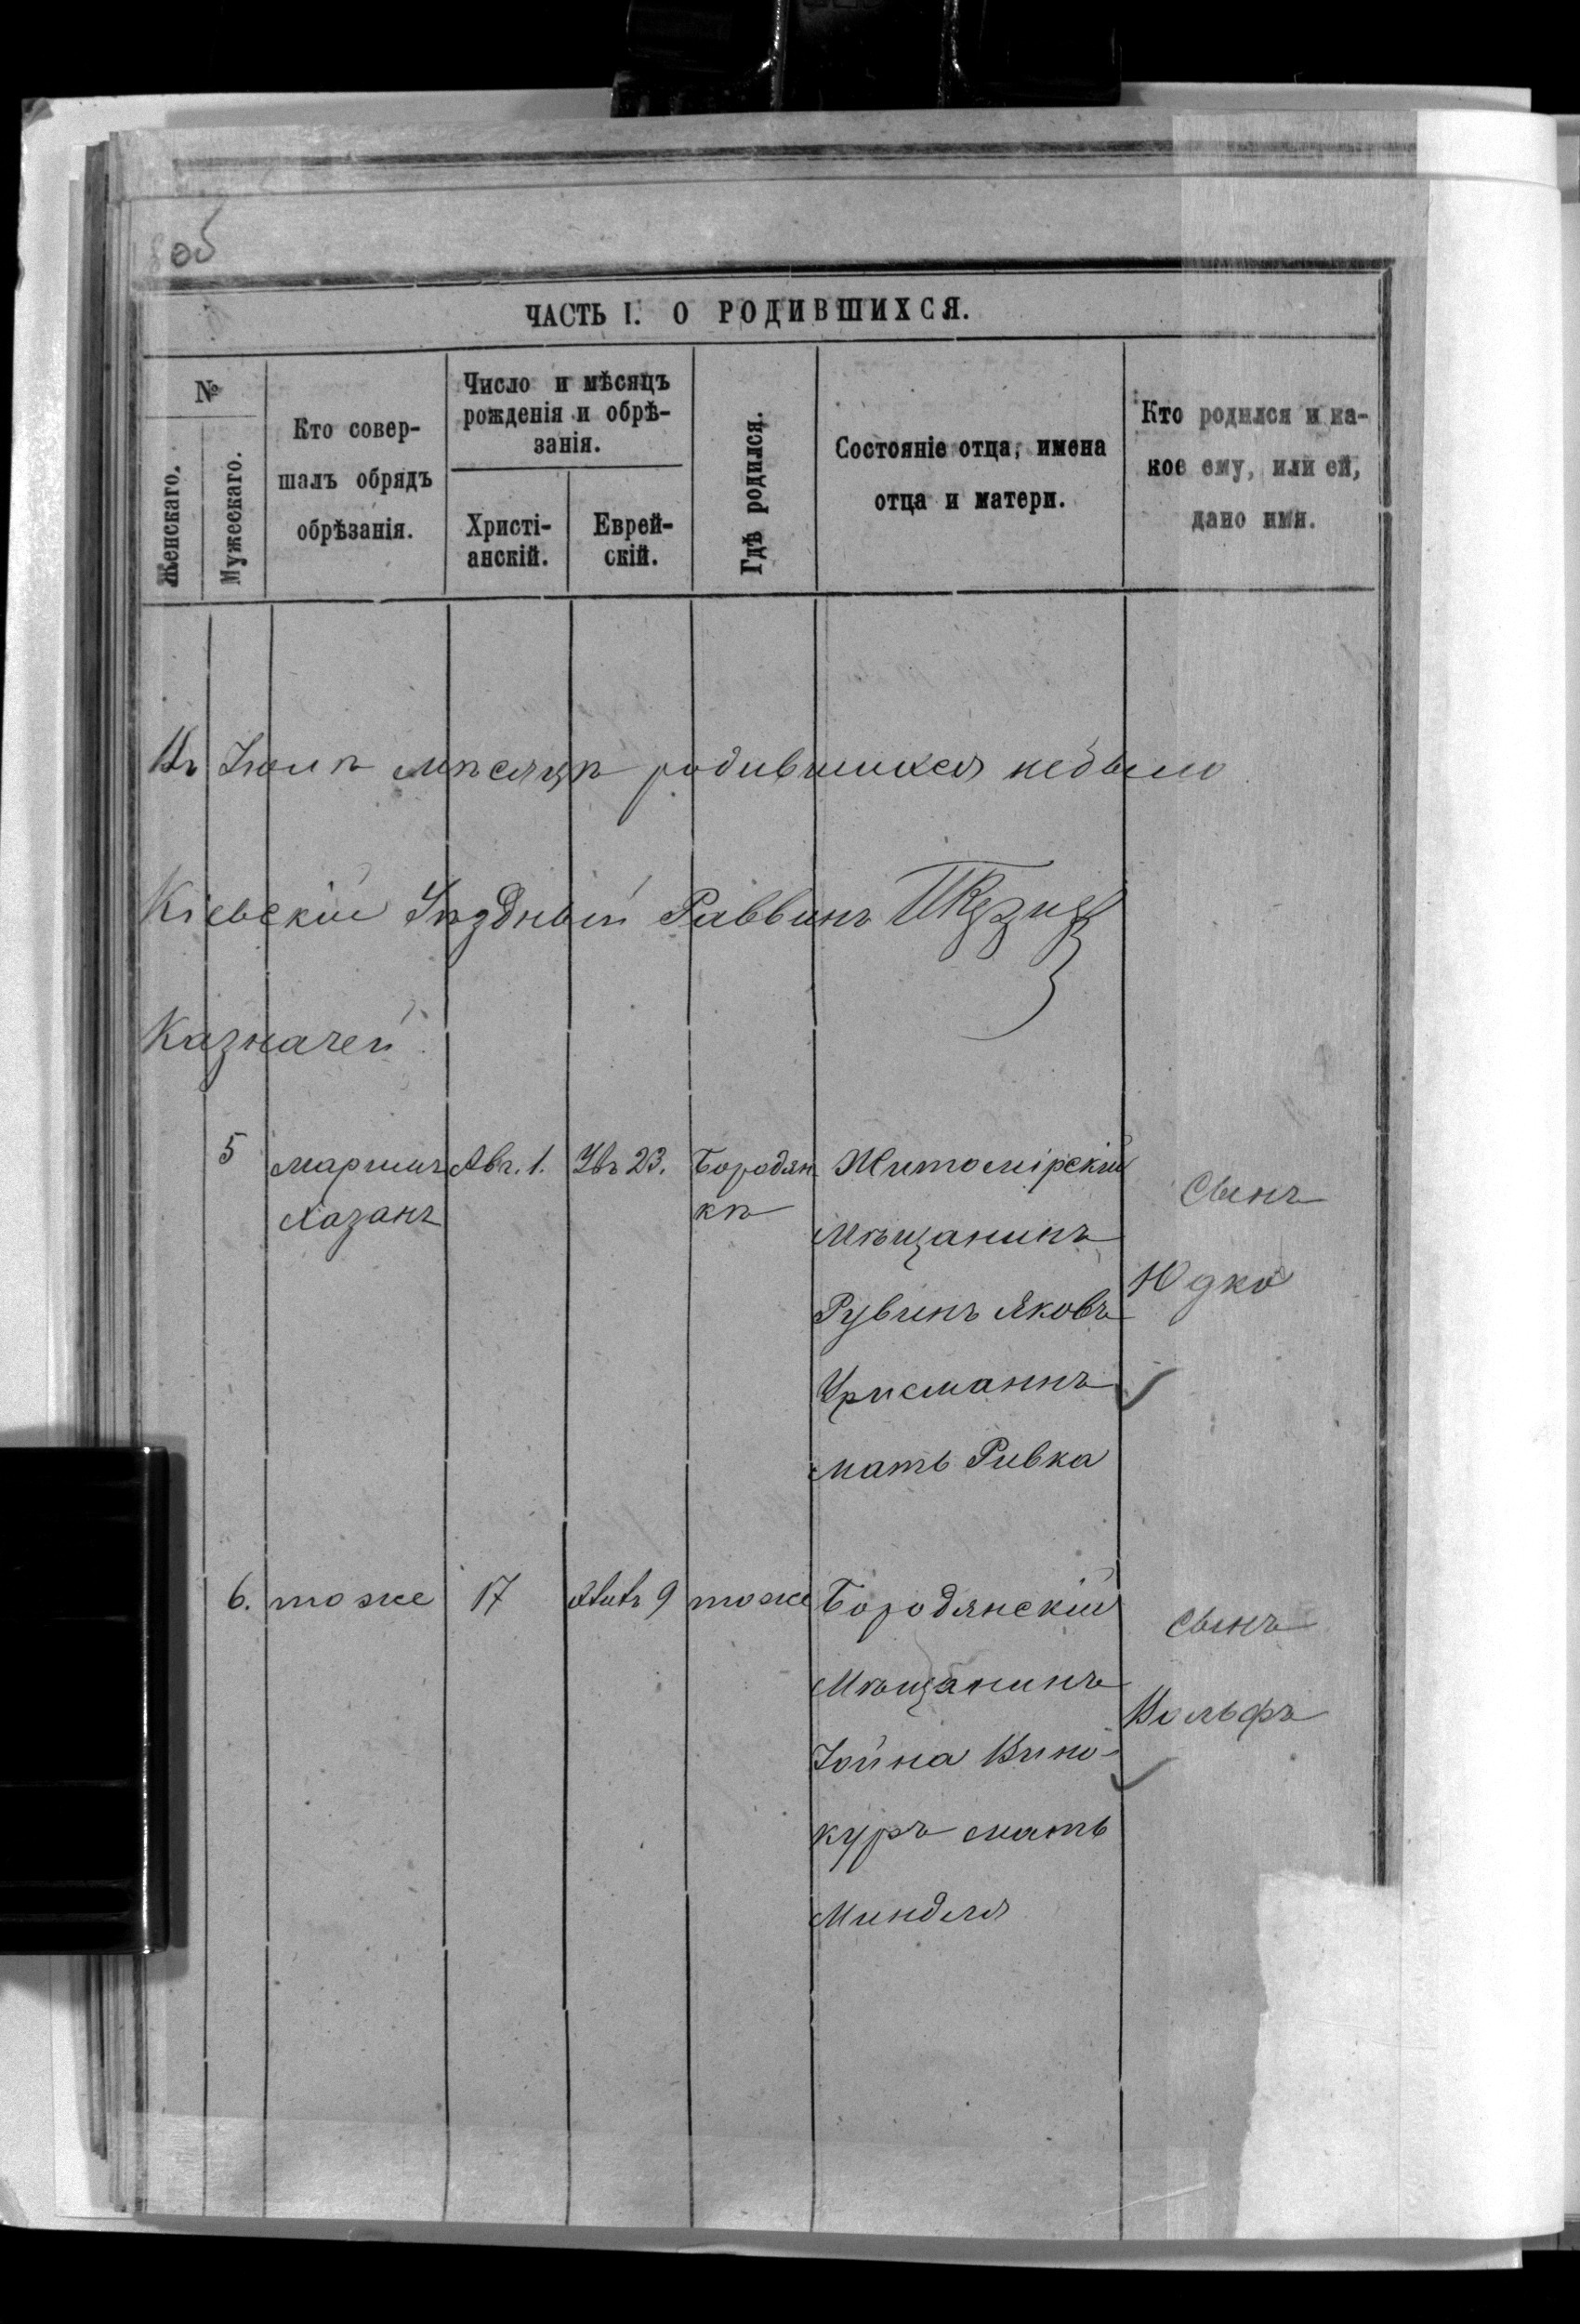 8об
ЧАСТЬ I. О РОДИВШИХСЯ.
№
Женскаго.
Мужескаго.
Кто совер-
шалъ обрядъ
обрѣзанія.
Число и мѣсяцъ
рожденія и обрѣ-
занія.
Христі-
анскій.
Еврей-
скій.
Гдѣ родился.
Состояніе отца, имена
отца и матери.
Кто родился и ка-
кое ему, или ей,
дано имя.
Въ Іюлѣ мѣсяцѣ родившихся небыло
Кіевскій Уѣздный Раввинъ
Казначей
5 Хазанъ Авг. 1. 23. Бородян
кѣ
Житомірскій
Мѣщанинъ
Рувинъ Яковъ
мать Ривка
Сынъ
Юдко
6. тоже 17 9 тоже
Бородянскій
Мѣщанинъ
Іойна Вино-
куръ мать
Миндля
Сынъ
Вольфъ